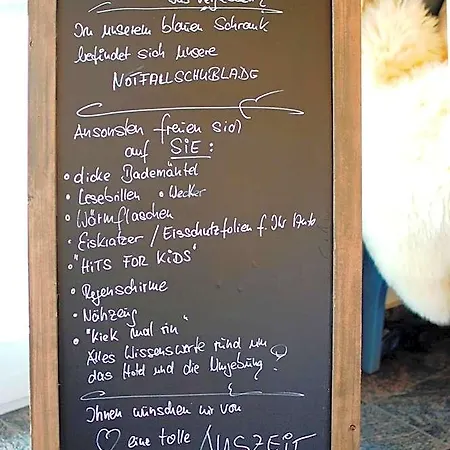 vergessen?
In unserem blauen Schrank
befindet sich unsere
NOTFALLSCHUBLADE
Ansonsten freuen sich
auf SIE:
• dicke Bademäntel
• Lesebrillen • Wecker
• Wärmflaschen
• Eiskratzer / Eisschutzfolien f. Ihr Auto
• "HITS FOR KIDS"
• Regenschirme
• Nähzeug
• "Kiek mal rin"
Alles Wissenswerte rund um
das Hotel und die Umgebung!
Ihnen wünschen wir von
♡ eine tolle AUSZEIT